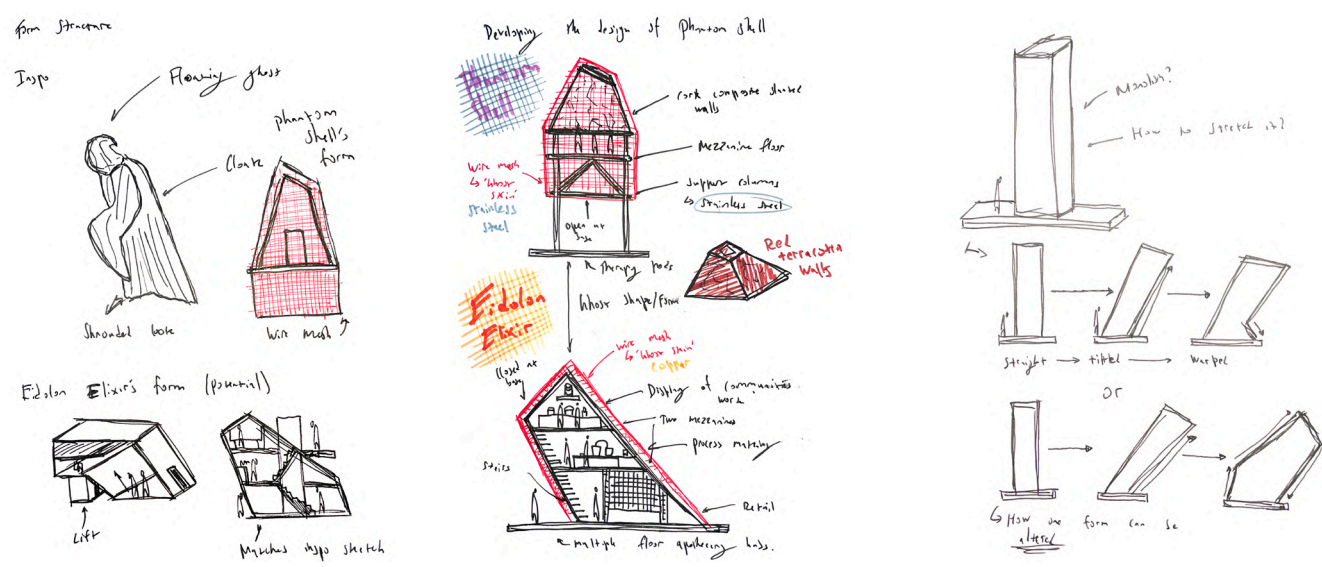 Form structure
Inspo
Flowing ghost
Cloak
phantom
shell's
form
Shrouded base
wire mesh
Eidolon Elixir's form (potential)
Lift
Matches inspo sketch
Developing the design of Phantom shell
Phantom
Shell
cork composite slanted
walls
Mezzanine floor
wire mesh
↳ 'Ghost
skin'
stainless
steel
support columns
↳ stainless steel
open at
base
therapy pods
Red
terracotta
walls
Ghost shape/form
Eidolon
Elixir
wire mesh
↳ 'Ghost skin'
copper
closed at
base
Display of communities
work
Two mezzanines
process making
stairs
Retail
multiple floor apothecary
Monolith?
How to stretch it?
straight → tilted → warped
or
↳ How one form can be
altered